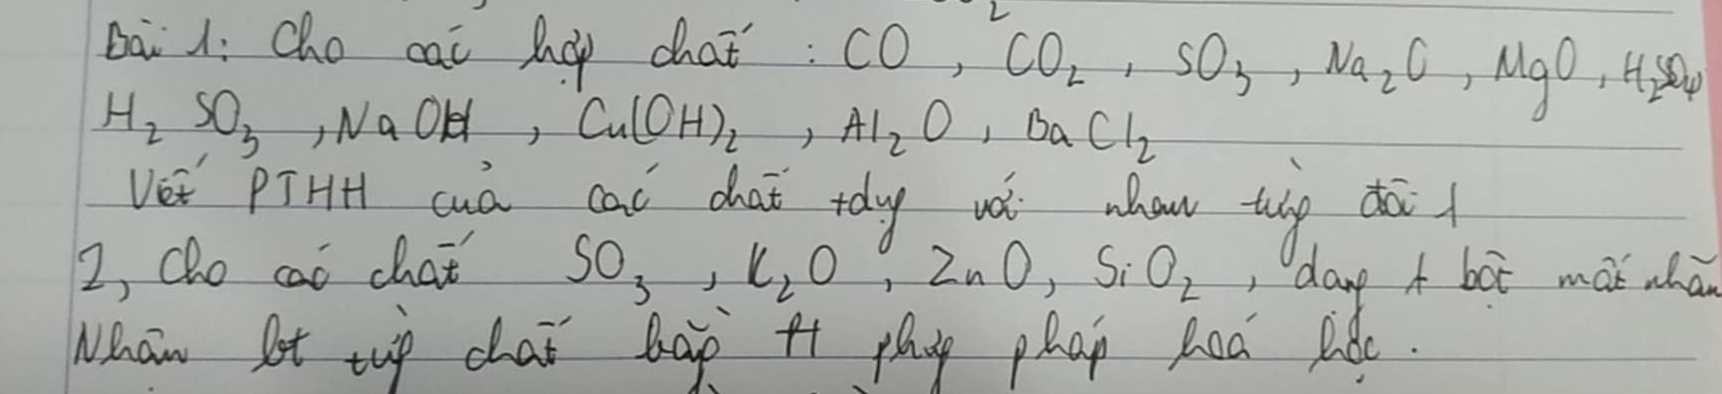 Bài 1: Cho các hợp chất : CO , CO₂ , SO₃ , Na₂O , MgO , H₂SO₄
H₂SO₃ , NaOH , Cu(OH)₂ , Al₂O , BaCl₂
Viết PTHH của các chất tdụg với nhau từg đôi 1
2, Cho các chất SO₃ , K₂O , ZnO , SiO₂ , dạng bột mất nhãn
Nhận bt từg chất bằg phươg pháp hoá học .